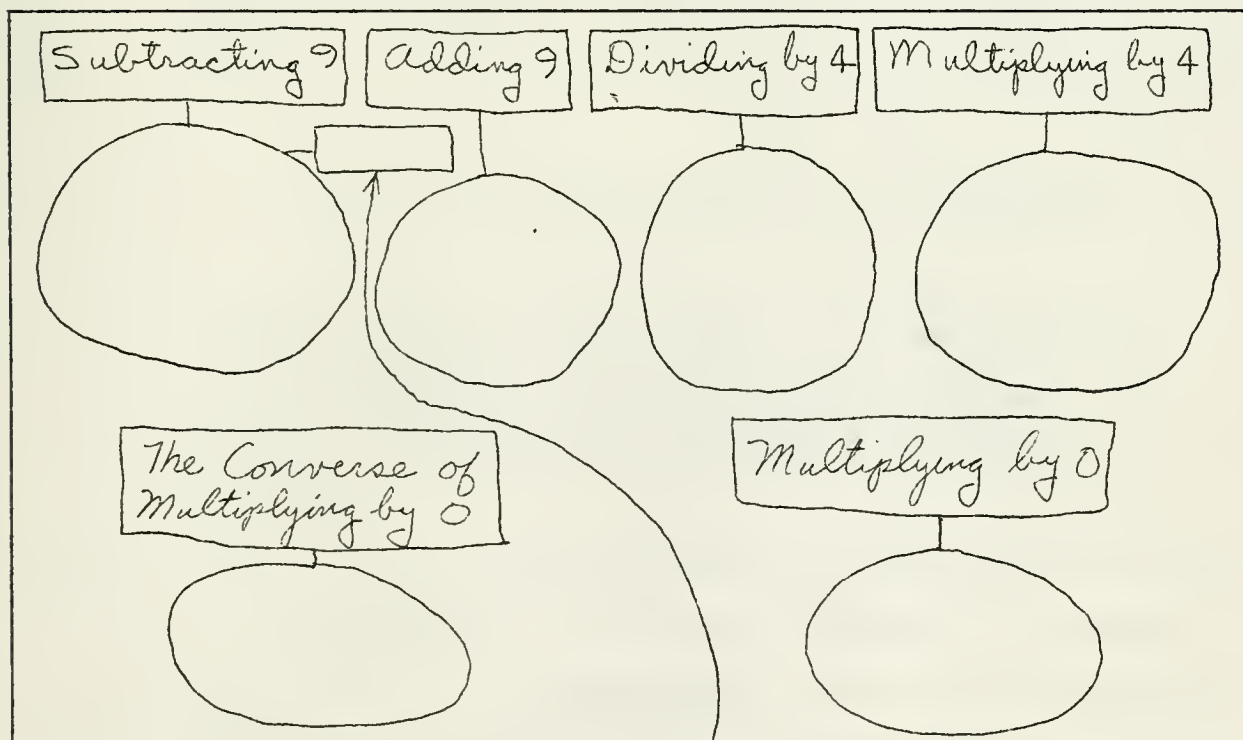 Subtracting 9
Adding 9
Dividing by 4
Multiplying by 4
The Converse of
Multiplying by 0
Multiplying by 0